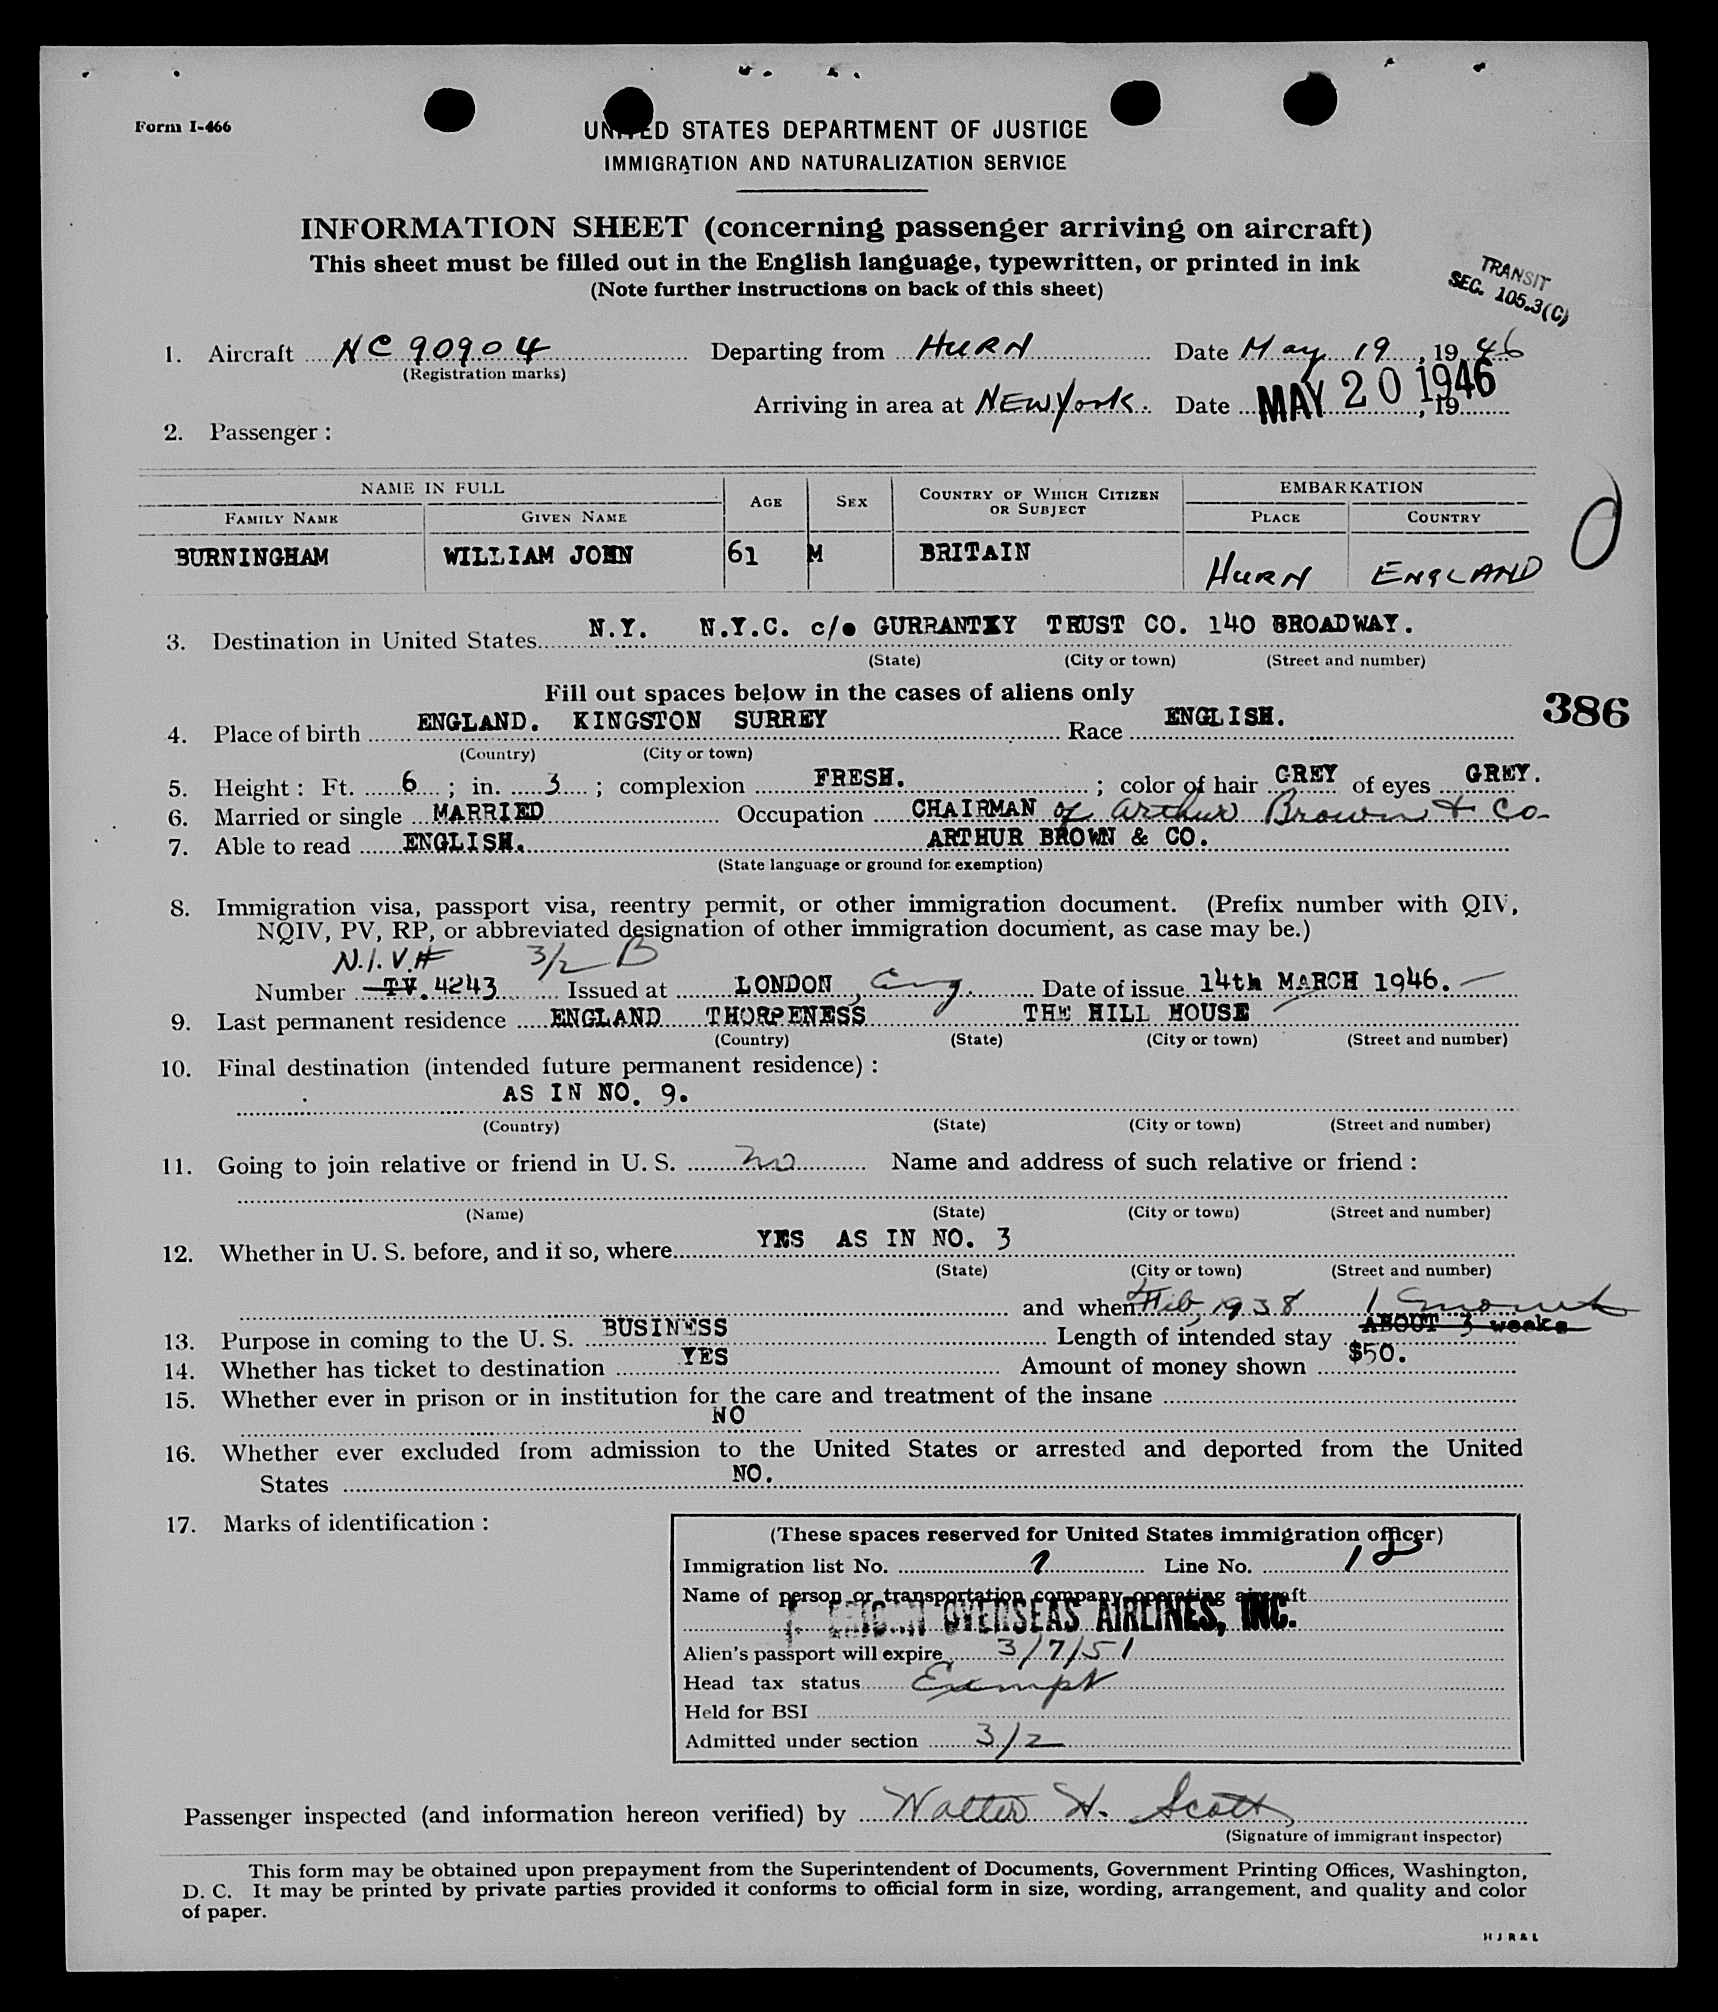 Form I-466
UNITED STATES DEPARTMENT OF JUSTICE
IMMIGRATION AND NATURALIZATION SERVICE
INFORMATION SHEET (concerning passenger arriving on aircraft)
This sheet must be filled out in the English language, typewritten, or printed in ink
(Note further instructions on back of this sheet)
TRANSIT
SEC. 105.3(C)
1. Aircraft NC 90904 Departing from HURN Date May 19, 1946
(Registration marks)
Arriving in area at NEW York Date MAY 20 1946, 19
2. Passenger:
NAME IN FULL AGE SEX COUNTRY OF WHICH CITIZEN OR SUBJECT EMBARKATION
FAMILY NAME GIVEN NAME PLACE COUNTRY
BURNINGHAM WILLIAM JOHN 61 M BRITAIN HURN ENGLAND
3. Destination in United States N.Y. N.Y.C. c/o GURRANTXY TRUST CO. 140 BROADWAY.
(State) (City or town) (Street and number)
Fill out spaces below in the cases of aliens only
386
4. Place of birth ENGLAND. KINGSTON SURREY Race ENGLISH.
(Country) (City or town)
5. Height: Ft. 6; in. 3; complexion FRESH.; color of hair GREY of eyes GREY.
6. Married or single MARRIED Occupation CHAIRMAN of Arthur Brown & Co-
7. Able to read ENGLISH. ARTHUR BROWN & CO.
(State language or ground for exemption)
8. Immigration visa, passport visa, reentry permit, or other immigration document. (Prefix number with QIV,
NQIV, PV, RP, or abbreviated designation of other immigration document, as case may be.)
N.I.V.# 3/2 B
Number TV. 4243 Issued at LONDON, Eng. Date of issue 14th MARCH 1946.
9. Last permanent residence ENGLAND THORPENESS THE HILL HOUSE
(Country) (State) (City or town) (Street and number)
10. Final destination (intended future permanent residence):
AS IN NO. 9.
(Country) (State) (City or town) (Street and number)
11. Going to join relative or friend in U. S. no Name and address of such relative or friend:
(Name) (State) (City or town) (Street and number)
12. Whether in U. S. before, and if so, where YES AS IN NO. 3
(State) (City or town) (Street and number)
and when Feb, 1938 1 month
13. Purpose in coming to the U. S. BUSINESS Length of intended stay ABOUT 3 weeks
14. Whether has ticket to destination YES Amount of money shown $50.
15. Whether ever in prison or in institution for the care and treatment of the insane
NO
16. Whether ever excluded from admission to the United States or arrested and deported from the United
States NO.
17. Marks of identification:
(These spaces reserved for United States immigration officer)
Immigration list No. Line No. 18
Name of person or transportation company operating aircraft
OVERSEAS AIRLINES, INC.
Alien's passport will expire 3/7/51
Head tax status Exempt
Held for BSI
Admitted under section 3/2
Passenger inspected (and information hereon verified) by Walter H. Scott
(Signature of immigrant inspector)
This form may be obtained upon prepayment from the Superintendent of Documents, Government Printing Offices, Washington,
D. C. It may be printed by private parties provided it conforms to official form in size, wording, arrangement, and quality and color
of paper.
HJR&L